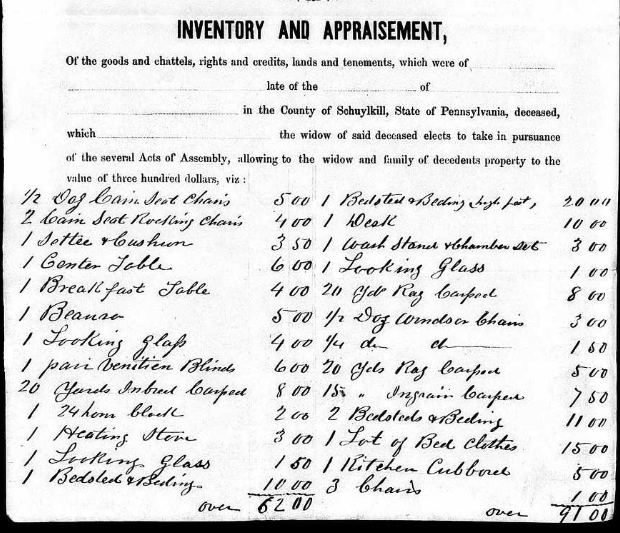 INVENTORY AND APPRAISEMENT,
Of the goods and chattels, rights and credits, lands and tenements, which were of
late of the of
in the County of Schuylkill, State of Pennsylvania, deceased,
which the widow of said deceased elects to take in pursuance
of the several Acts of Assembly, allowing to the widow and family of decedents property to the
value of three hundred dollars, viz:
1/2 Doz Cain Seat Chairs 5 00
2 Cain Seat Rocking Chairs 4 00
1 Settee & Cushion 3 50
1 Center Table 6 00
1 Breakfast Table 4 00
1 Beauro 5 00
1 Looking Glass 4 00
1 pair Venitien Blinds 6 00
20 Yards Inbred Carped 8 00
1 24 hour Clock 2 00
1 Heating Stove 3 00
1 Looking Glass 1 50
1 Bedsted & Beding 10 00
over 62 00
1 Bedsted & Beding high post, 20 00
1 Desk 10 00
1 Wash Stand & Chamber Set 3 00
1 Looking Glass 1 00
20 Yds Rag Carped 8 00
1/2 Doz Windsor Chairs 3 00
1/4 do do 1 50
20 Yds Rag Carped 5 00
15 " Ingrain Carped 7 50
2 Bedsteds & Beding 11 00
1 Lot of Bed Clothes 15 00
1 Kitchen Cubbord 5 00
3 Chairs 1 00
over 91 00